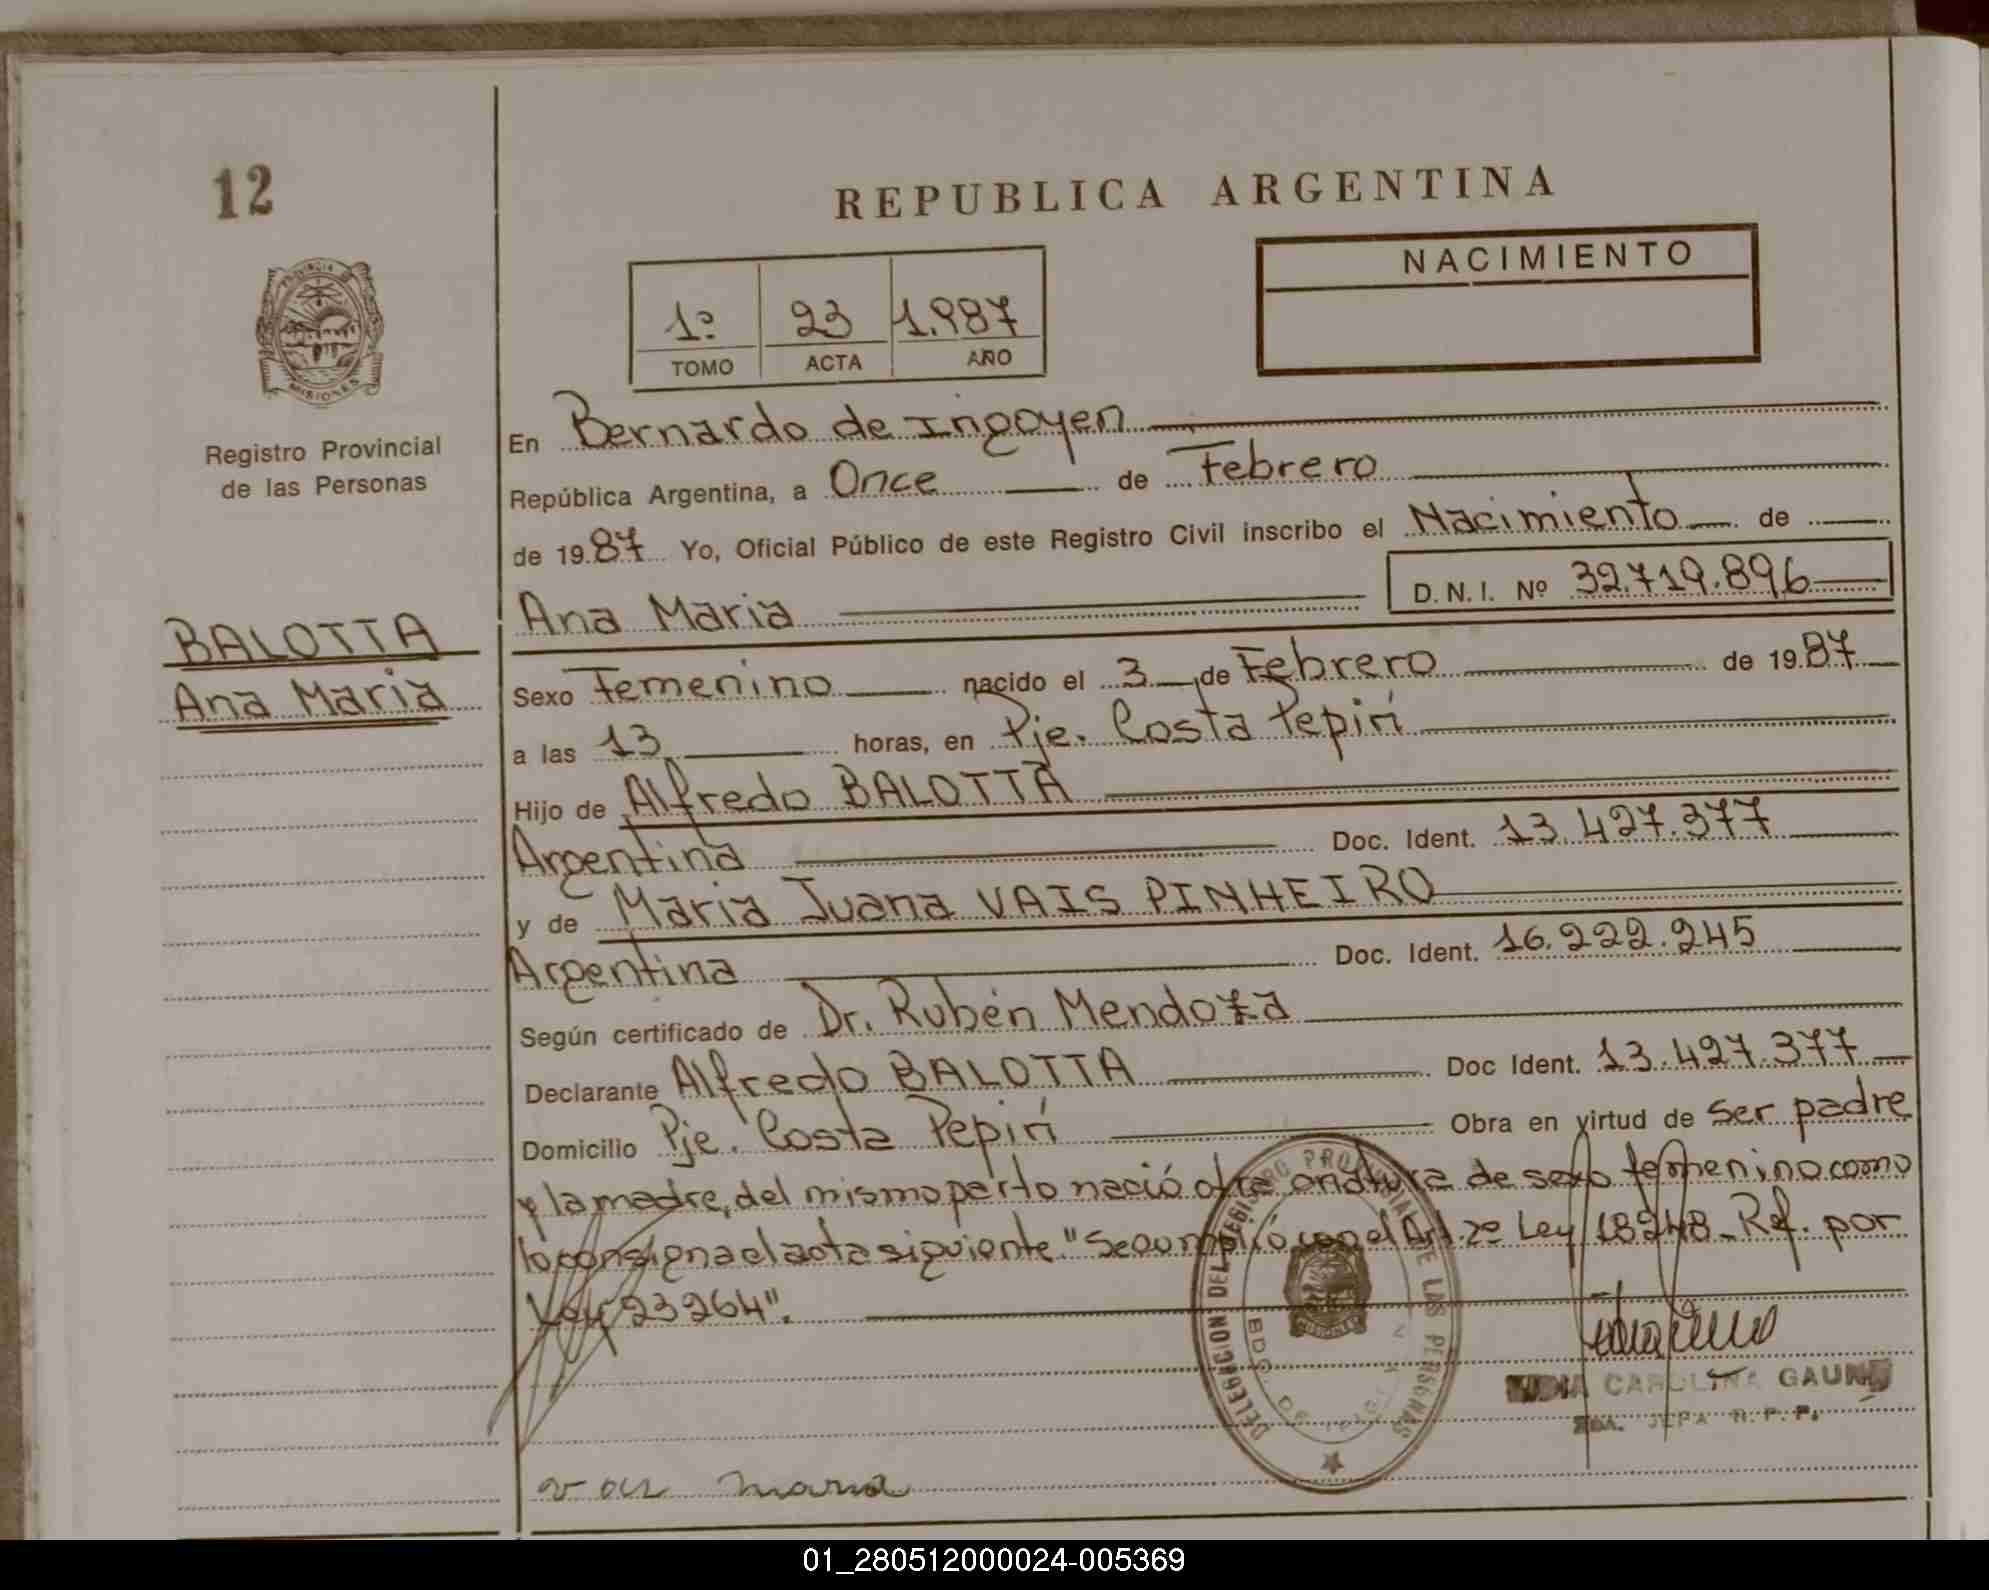 12
REPUBLICA ARGENTINA
NACIMIENTO
1º 23 1.987
TOMO ACTA AÑO
PROVINCIA DE
MISIONES
Registro Provincial
de las Personas
En Bernardo de Irigoyen
República Argentina, a Once de Febrero
de 19 87 Yo, Oficial Público de este Registro Civil inscribo el Nacimiento de
D.N.I. Nº 32.719.896
Ana Maria
BALOTTA
Ana Maria
Sexo Femenino nacido el 3 de Febrero de 19 87
a las 13 horas, en Pje. Costa Pepirí
Hijo de Alfredo BALOTTA
Argentina Doc. Ident. 13.427.377
y de Maria Juana VAIS PINHEIRO
Argentina Doc. Ident. 16.222.245
Según certificado de Dr. Rubén Mendoza
Declarante Alfredo BALOTTA Doc Ident. 13.427.377
Domicilio Pje. Costa Pepirí Obra en virtud de ser padre
y la madre, del mismo parto nació otra criatura de sexo femenino como
lo consigna el acta siguiente "Se cumplió con el Art. 2º Ley 18248_ Ref. por
Ley 23264".
DELEGACION DEL REGISTRO PROVINCIAL DE LAS PERSONAS
BDO. DE IRIGOYEN
MISIONES
CAROLINA GAUNA
JEFA R.P.P.
01_280512000024-005369